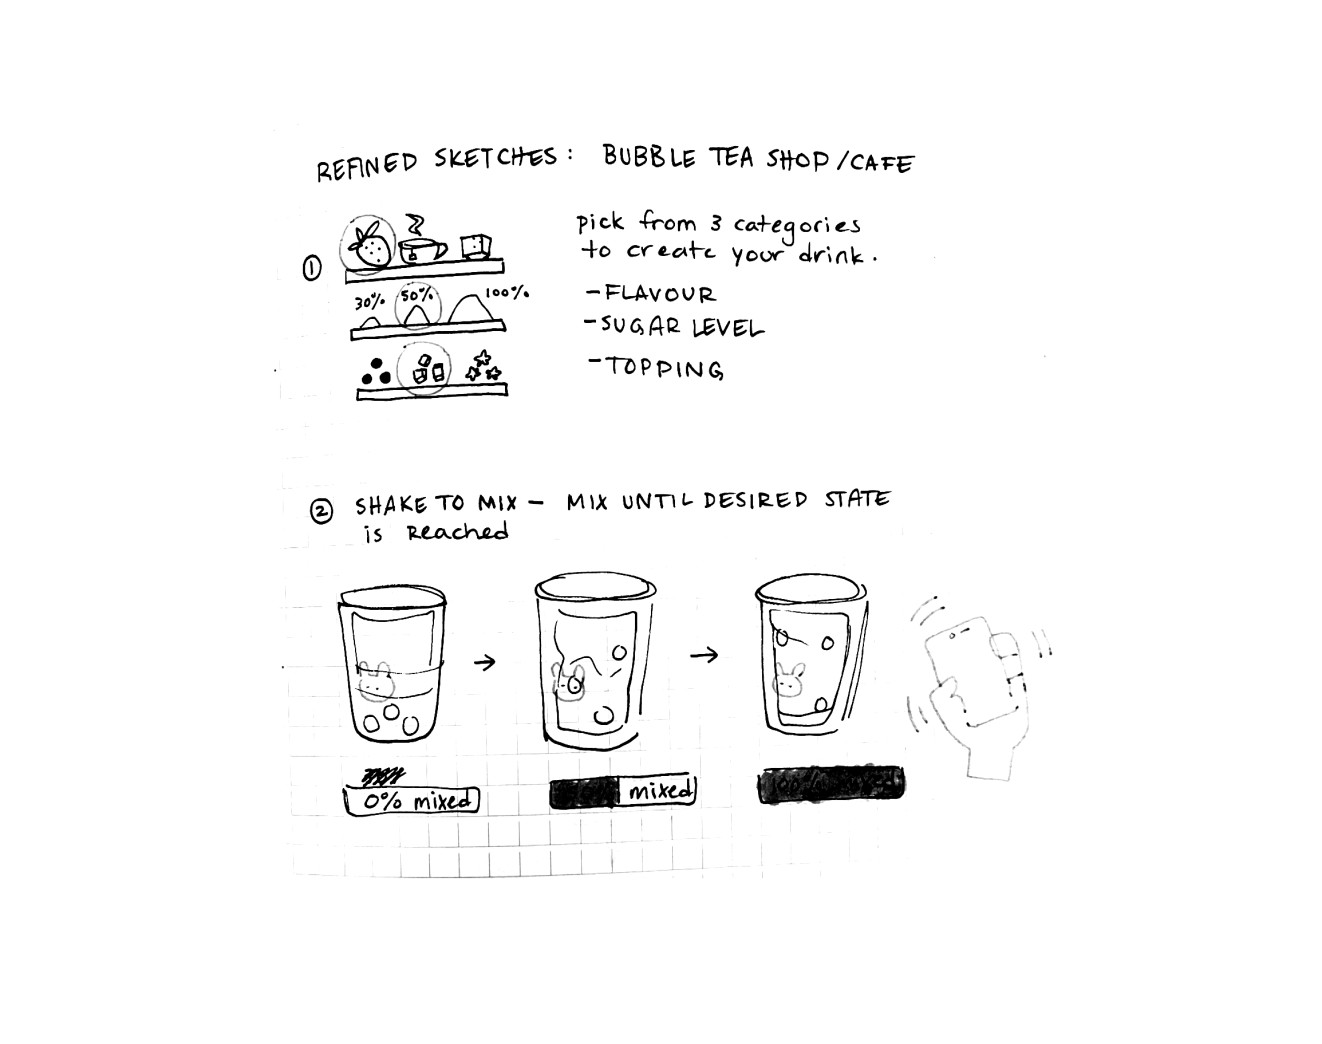 REFINED SKETCHES: BUBBLE TEA SHOP/CAFE
pick from 3 categories
to create your drink.
①
30% 50% 100%
-FLAVOUR
-SUGAR LEVEL
-TOPPING
② SHAKE TO MIX - MIX UNTIL DESIRED STATE
is Reached
0% mixed
mixed
100%